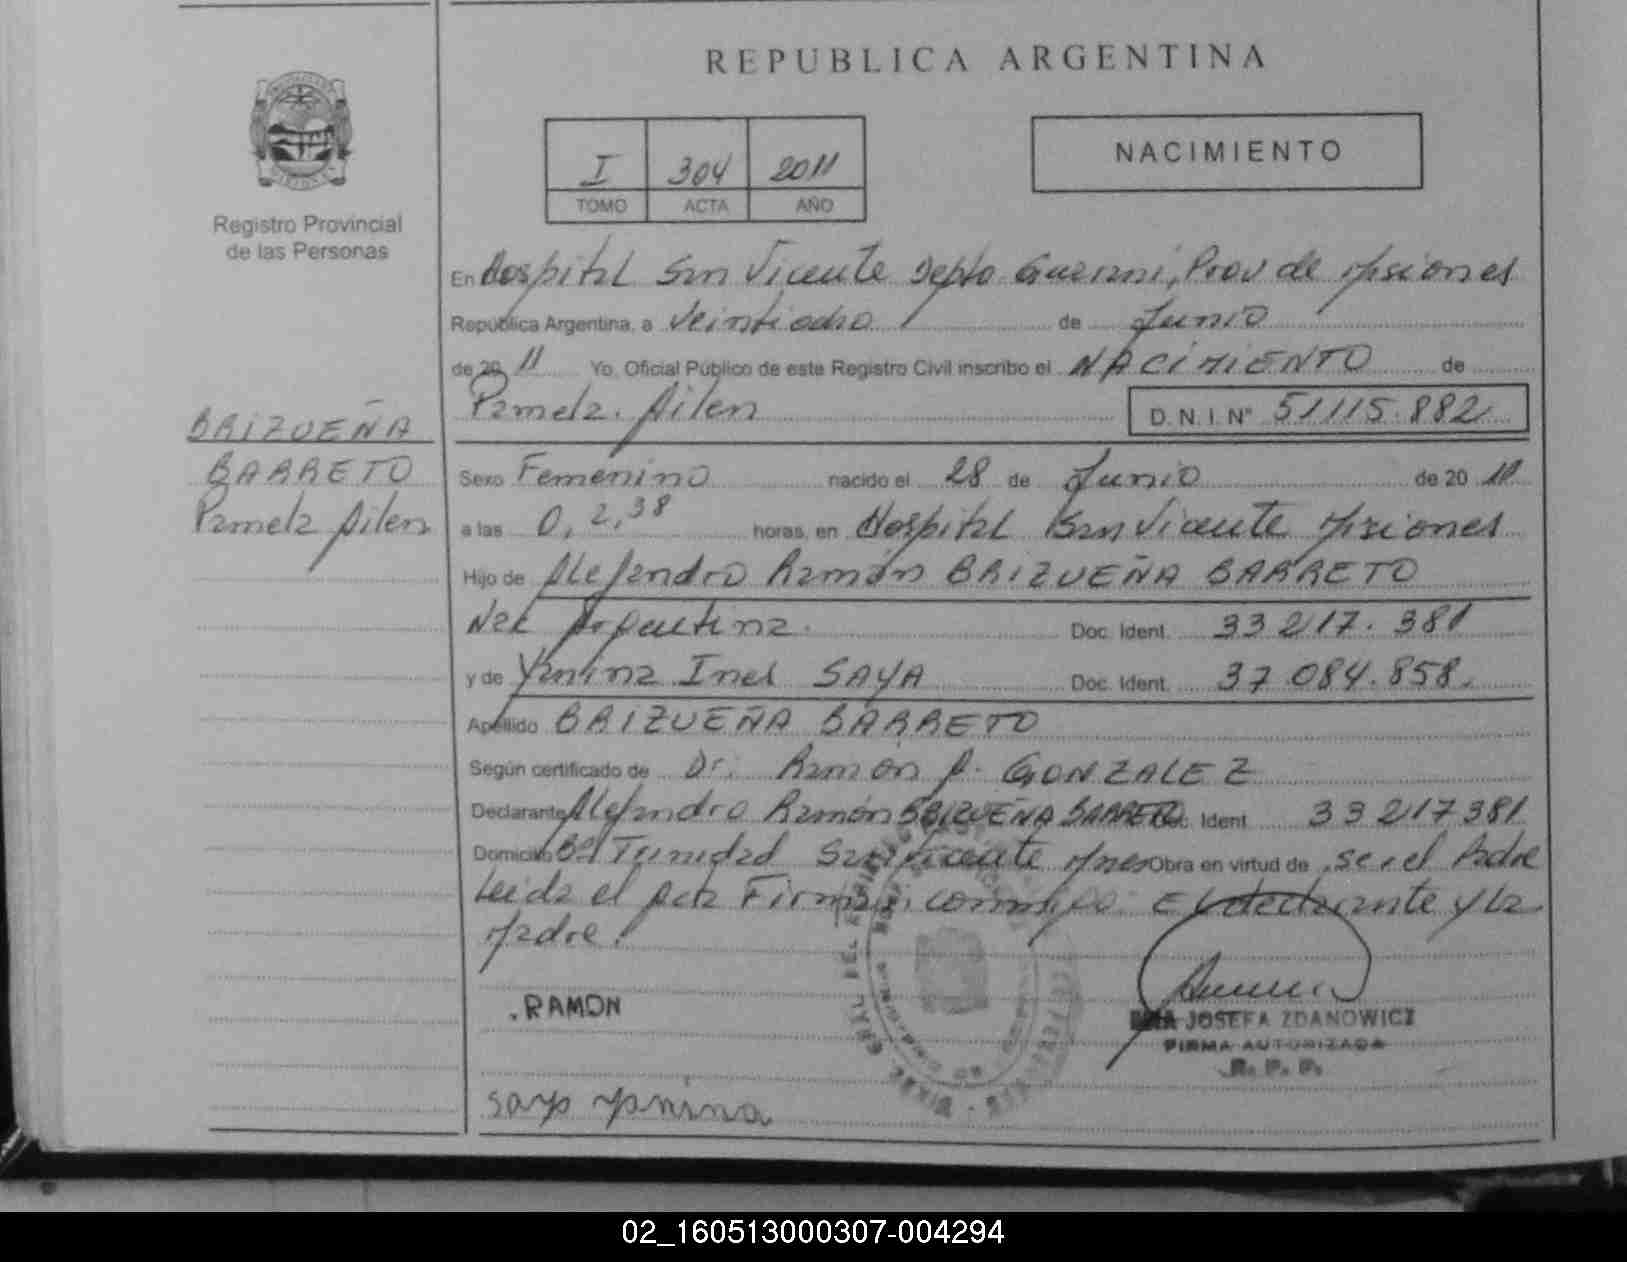 REPUBLICA ARGENTINA
Registro Provincial
de las Personas
I 304 2011
TOMO ACTA AÑO
NACIMIENTO
En Hospital San Vicente Depto Guarani, Prov de Misiones
República Argentina, a Veintiocho de Junio
de 2011 Yo, Oficial Público de este Registro Civil inscribo el NACIMIENTO de
Pamela Ailen D.N.I. Nº 51115.882
BRIZUEÑA
BARRETO
Pamela Ailen
Sexo Femenino nacido el 28 de Junio de 20 11
a las 0,2,38 horas, en Hospital San Vicente Misiones
Hijo de Alejandro Ramón BRIZUEÑA BARRETO
Nac Argentina. Doc. Ident. 33217.381
y de Yanina Ines SAYA Doc. Ident. 37.084.858.
Apellido BRIZUEÑA BARRETO
Según certificado de Dr. Ramón A. GONZALEZ
Declarante Alejandro Ramón BRIZUEÑA BARRETO Doc. Ident. 33217381
Domicilio Bº Trinidad San Vicente Mnes Obra en virtud de ser el Padre
Leida el acta Firman conmigo El declarante y La
Madre.
RAMON
JOSEFA ZDANOWICZ
FIRMA AUTORIZADA
R. P. P.
saya yanina
02_160513000307-004294